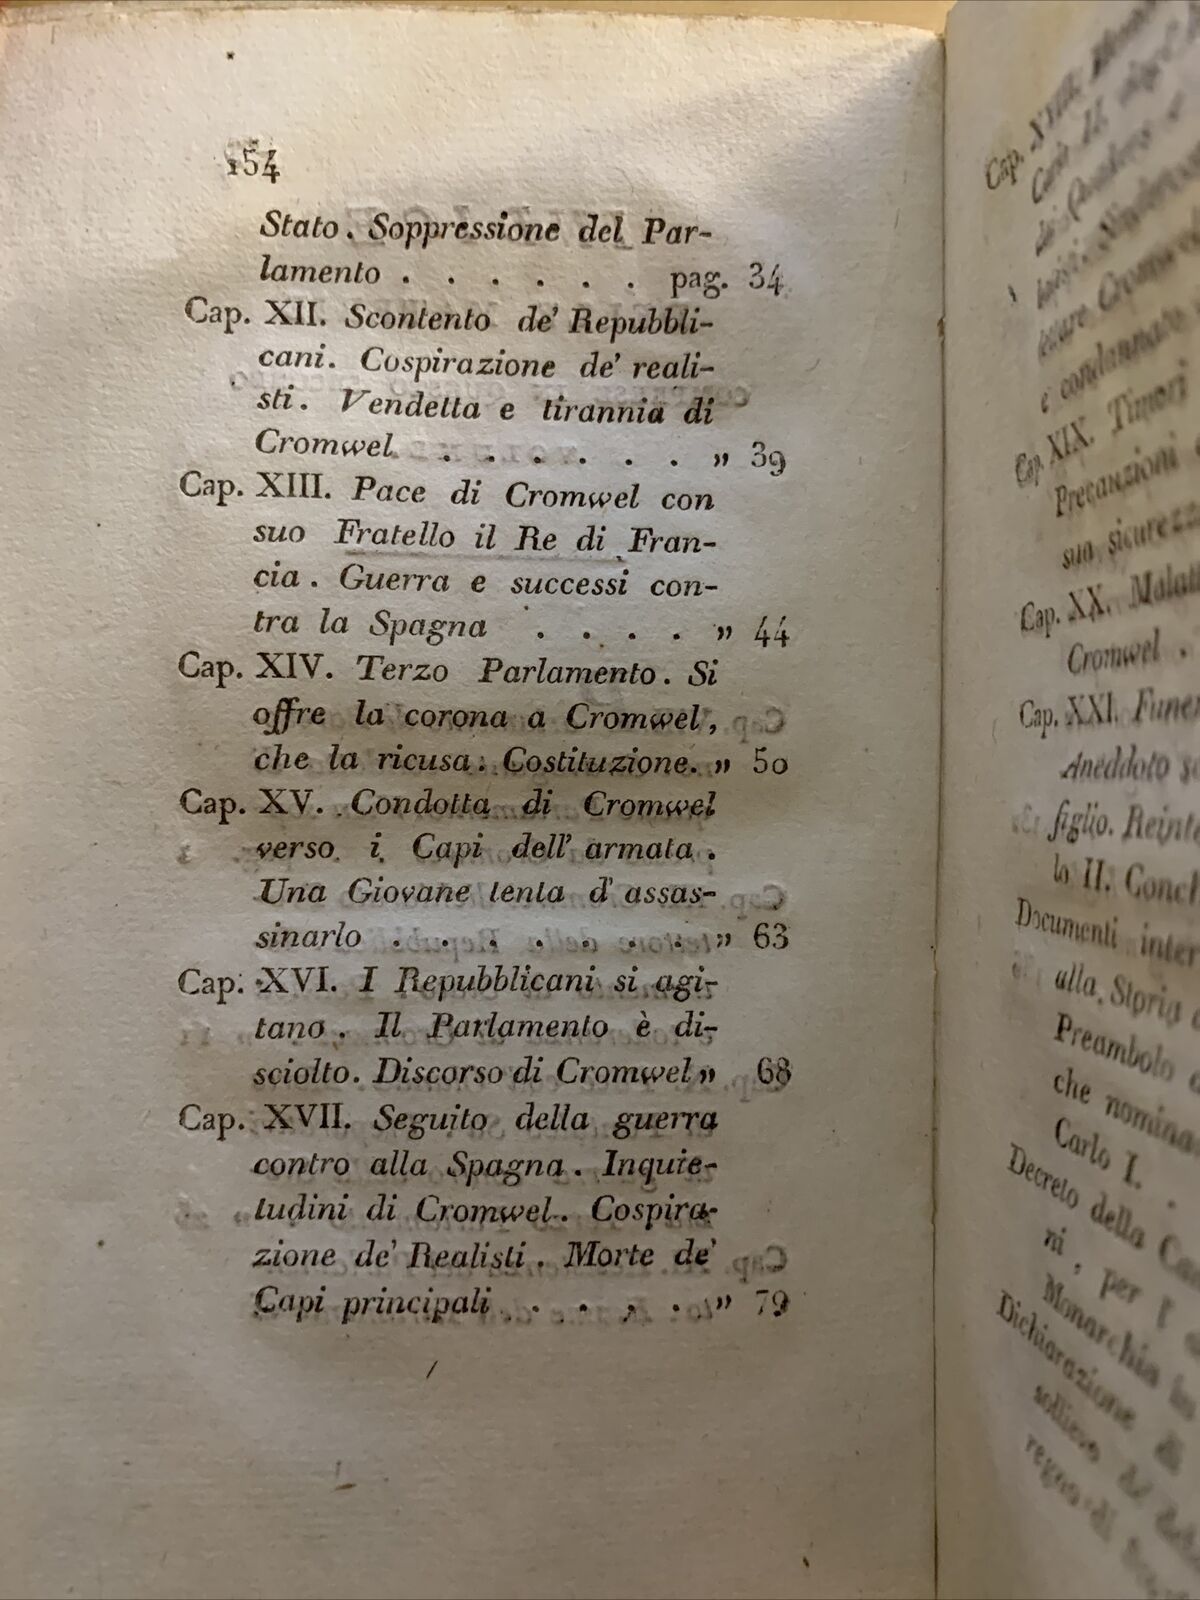 154
Stato. Soppressione del Par-
lamento . . . . . . pag. 34
Cap. XII. Scontento de' Repubbli-
cani. Cospirazione de' reali-
sti. Vendetta e tirannia di
Cromwel. . . . . . . „ 39
Cap. XIII. Pace di Cromwel con
suo Fratello il Re di Fran-
cia. Guerra e successi con-
tra la Spagna . . . . „ 44
Cap. XIV. Terzo Parlamento. Si
offre la corona a Cromwel,
che la ricusa. Costituzione. „ 50
Cap. XV. Condotta di Cromwel
verso i Capi dell' armata.
Una Giovane tenta d' assas-
sinarlo . . . . . . . „ 63
Cap. XVI. I Repubblicani si agi-
tano. Il Parlamento è di-
sciolto. Discorso di Cromwel „ 68
Cap. XVII. Seguito della guerra
contro alla Spagna. Inquie-
tudini di Cromwel. Cospira-
zione de' Realisti. Morte de'
Capi principali . . . . . „ 79
Cap. XVIII.
e condannato
Cap. XIX. Timori
Precauzioni
sua sicurezz
Cap. XX. Malatt
Cromwel .
Cap. XXI. Funer
Aneddoto s
figlio. Reint
lo II. Concl
Documenti inter
alla Storia
Preambolo
che nomina
Carlo I. .
Decreto della Ca
ni, per l'
Monarchia in
Dichiarazione di
sollievo
regno di